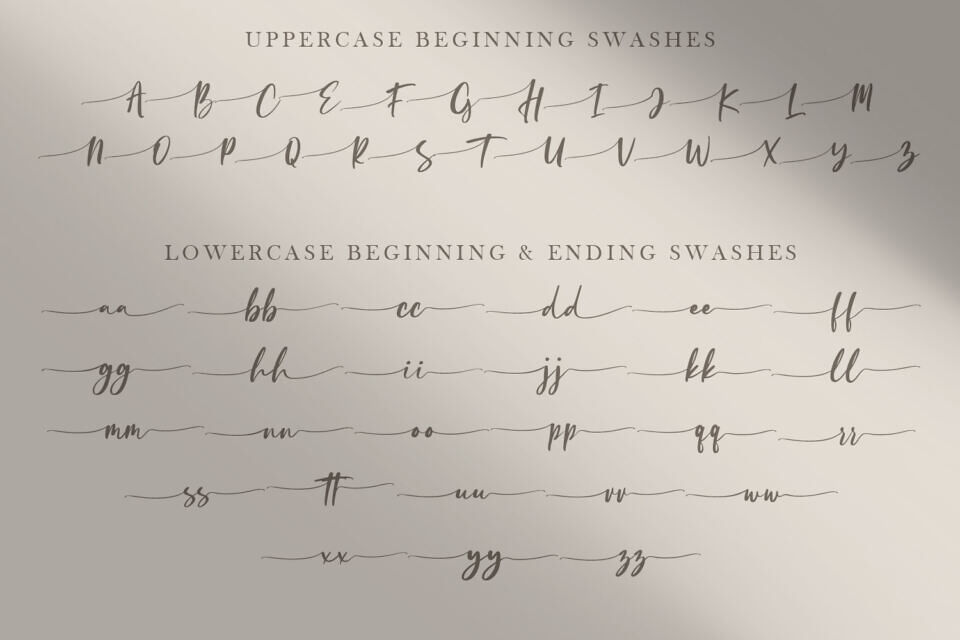 UPPERCASE BEGINNING SWASHES
A B C E F G H I J K L M
N O P Q R S T U V W X y z
LOWERCASE BEGINNING & ENDING SWASHES
aa bb cc dd ee ff
gg hh ii jj kk ll
mm nn oo pp qq rr
ss tt uu vv ww
xx yy zz